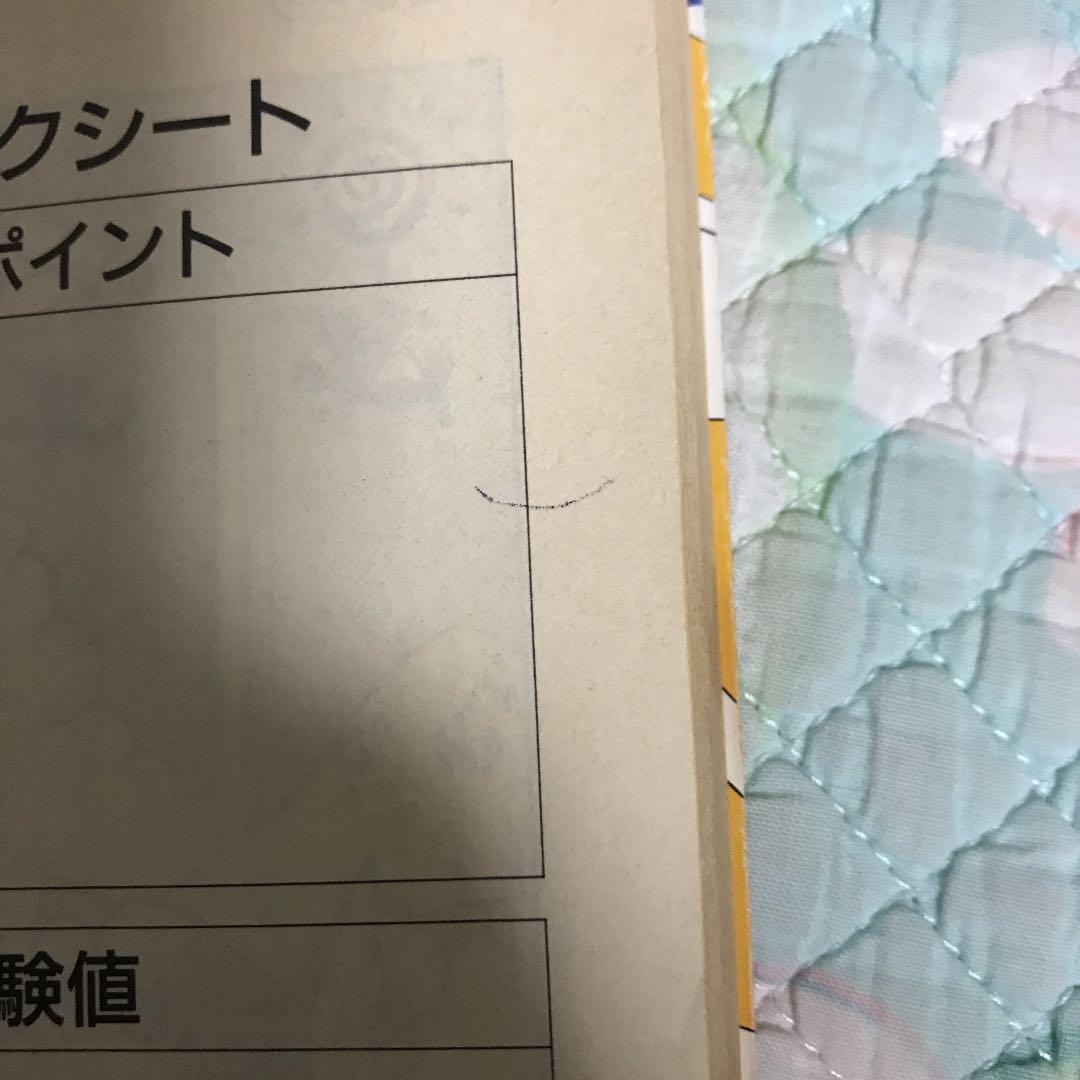 クシート
ポイント
験値